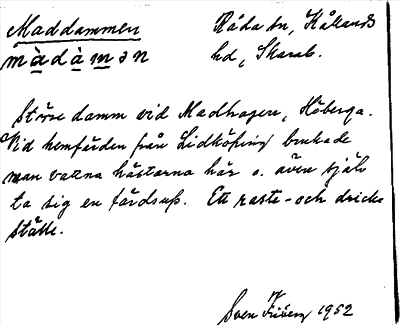 Maddammen Råda sn, Kållands
màdàmən hd, Skarab.
Större damm vid Madhagen, Höberga.
Vid hemfärden från Lidköping brukade
man vattna hästarna här o. även själv
ta sig en färdsup. Ett raste- och dricka
ställe.
Sven 1952